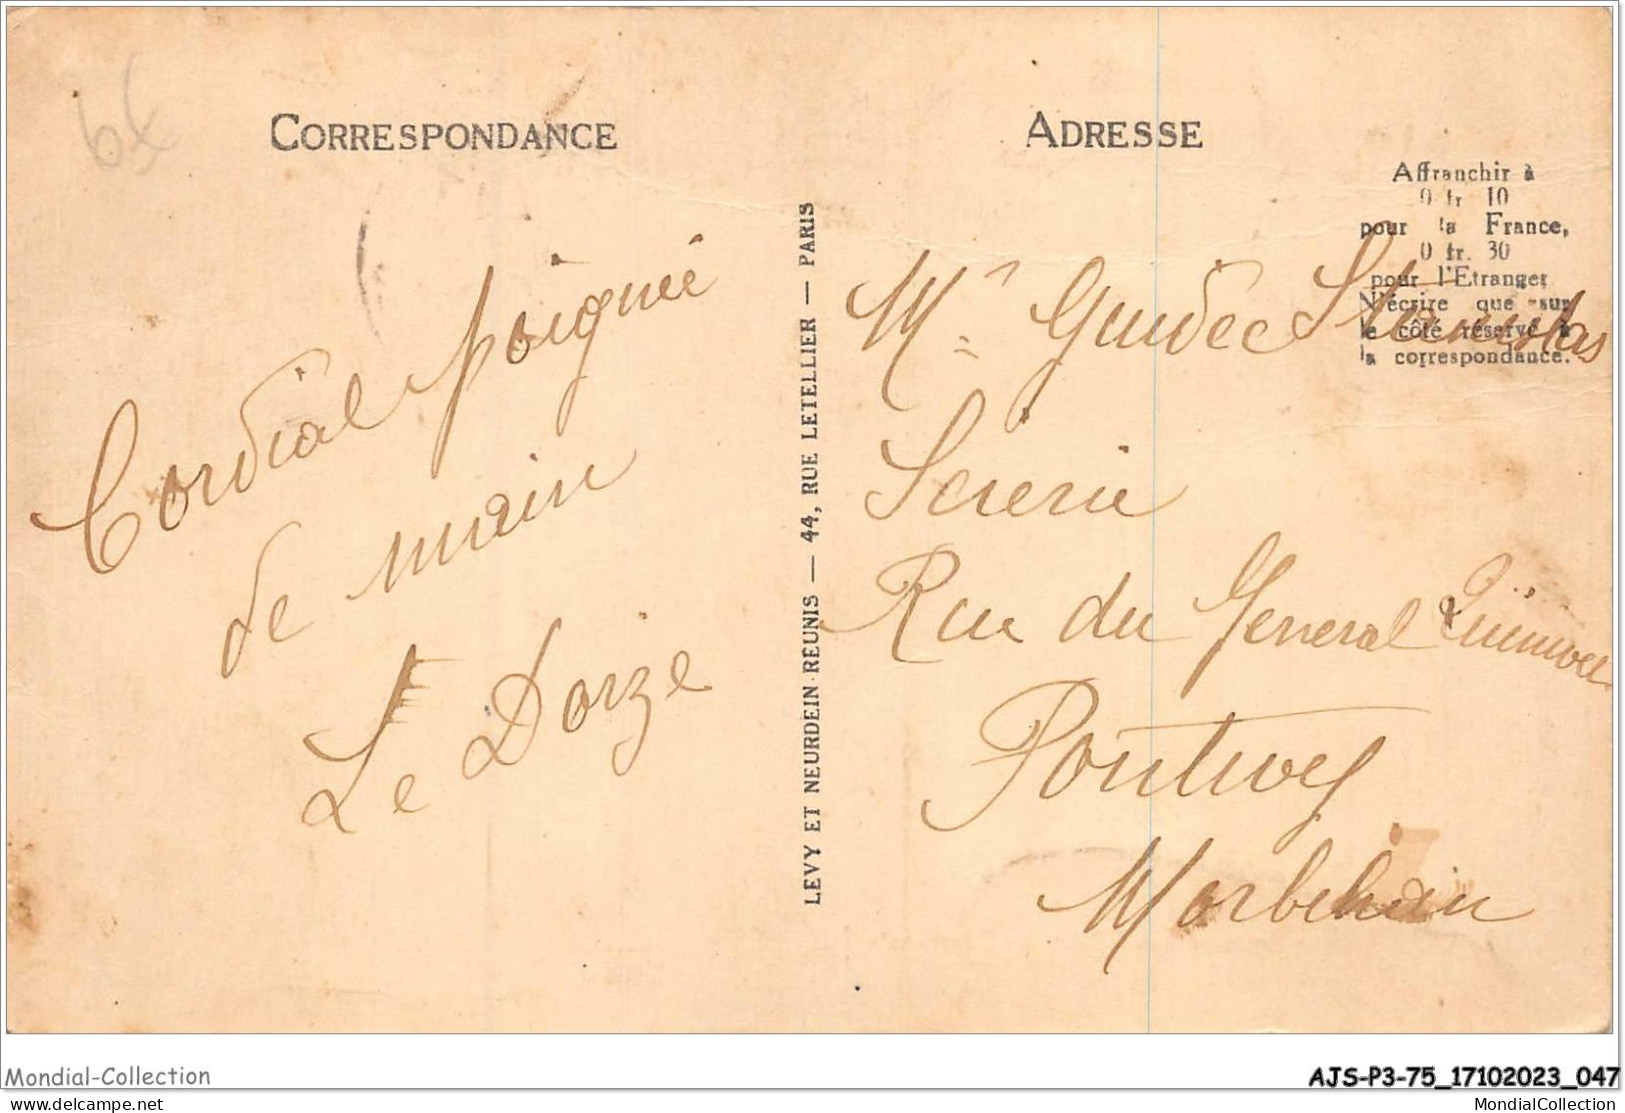 CORRESPONDANCE
Cordial poignée
de main
Le Dorze
LEVY ET NEURDEIN REUNIS — 44, RUE LETELLIER — PARIS
ADRESSE
Affranchir à
0 fr 10
pour la France,
0 fr. 30
pour l'Etranger
N'écrire que sur
le côté réservé à
la correspondance.
Mr Guidec Stanislas
Scierie
Rue du General Quinivet
Pontivy
Morbihan
Mondial-Collection
AJS-P3-75_17102023_047
delcampe.net
MondialCollection